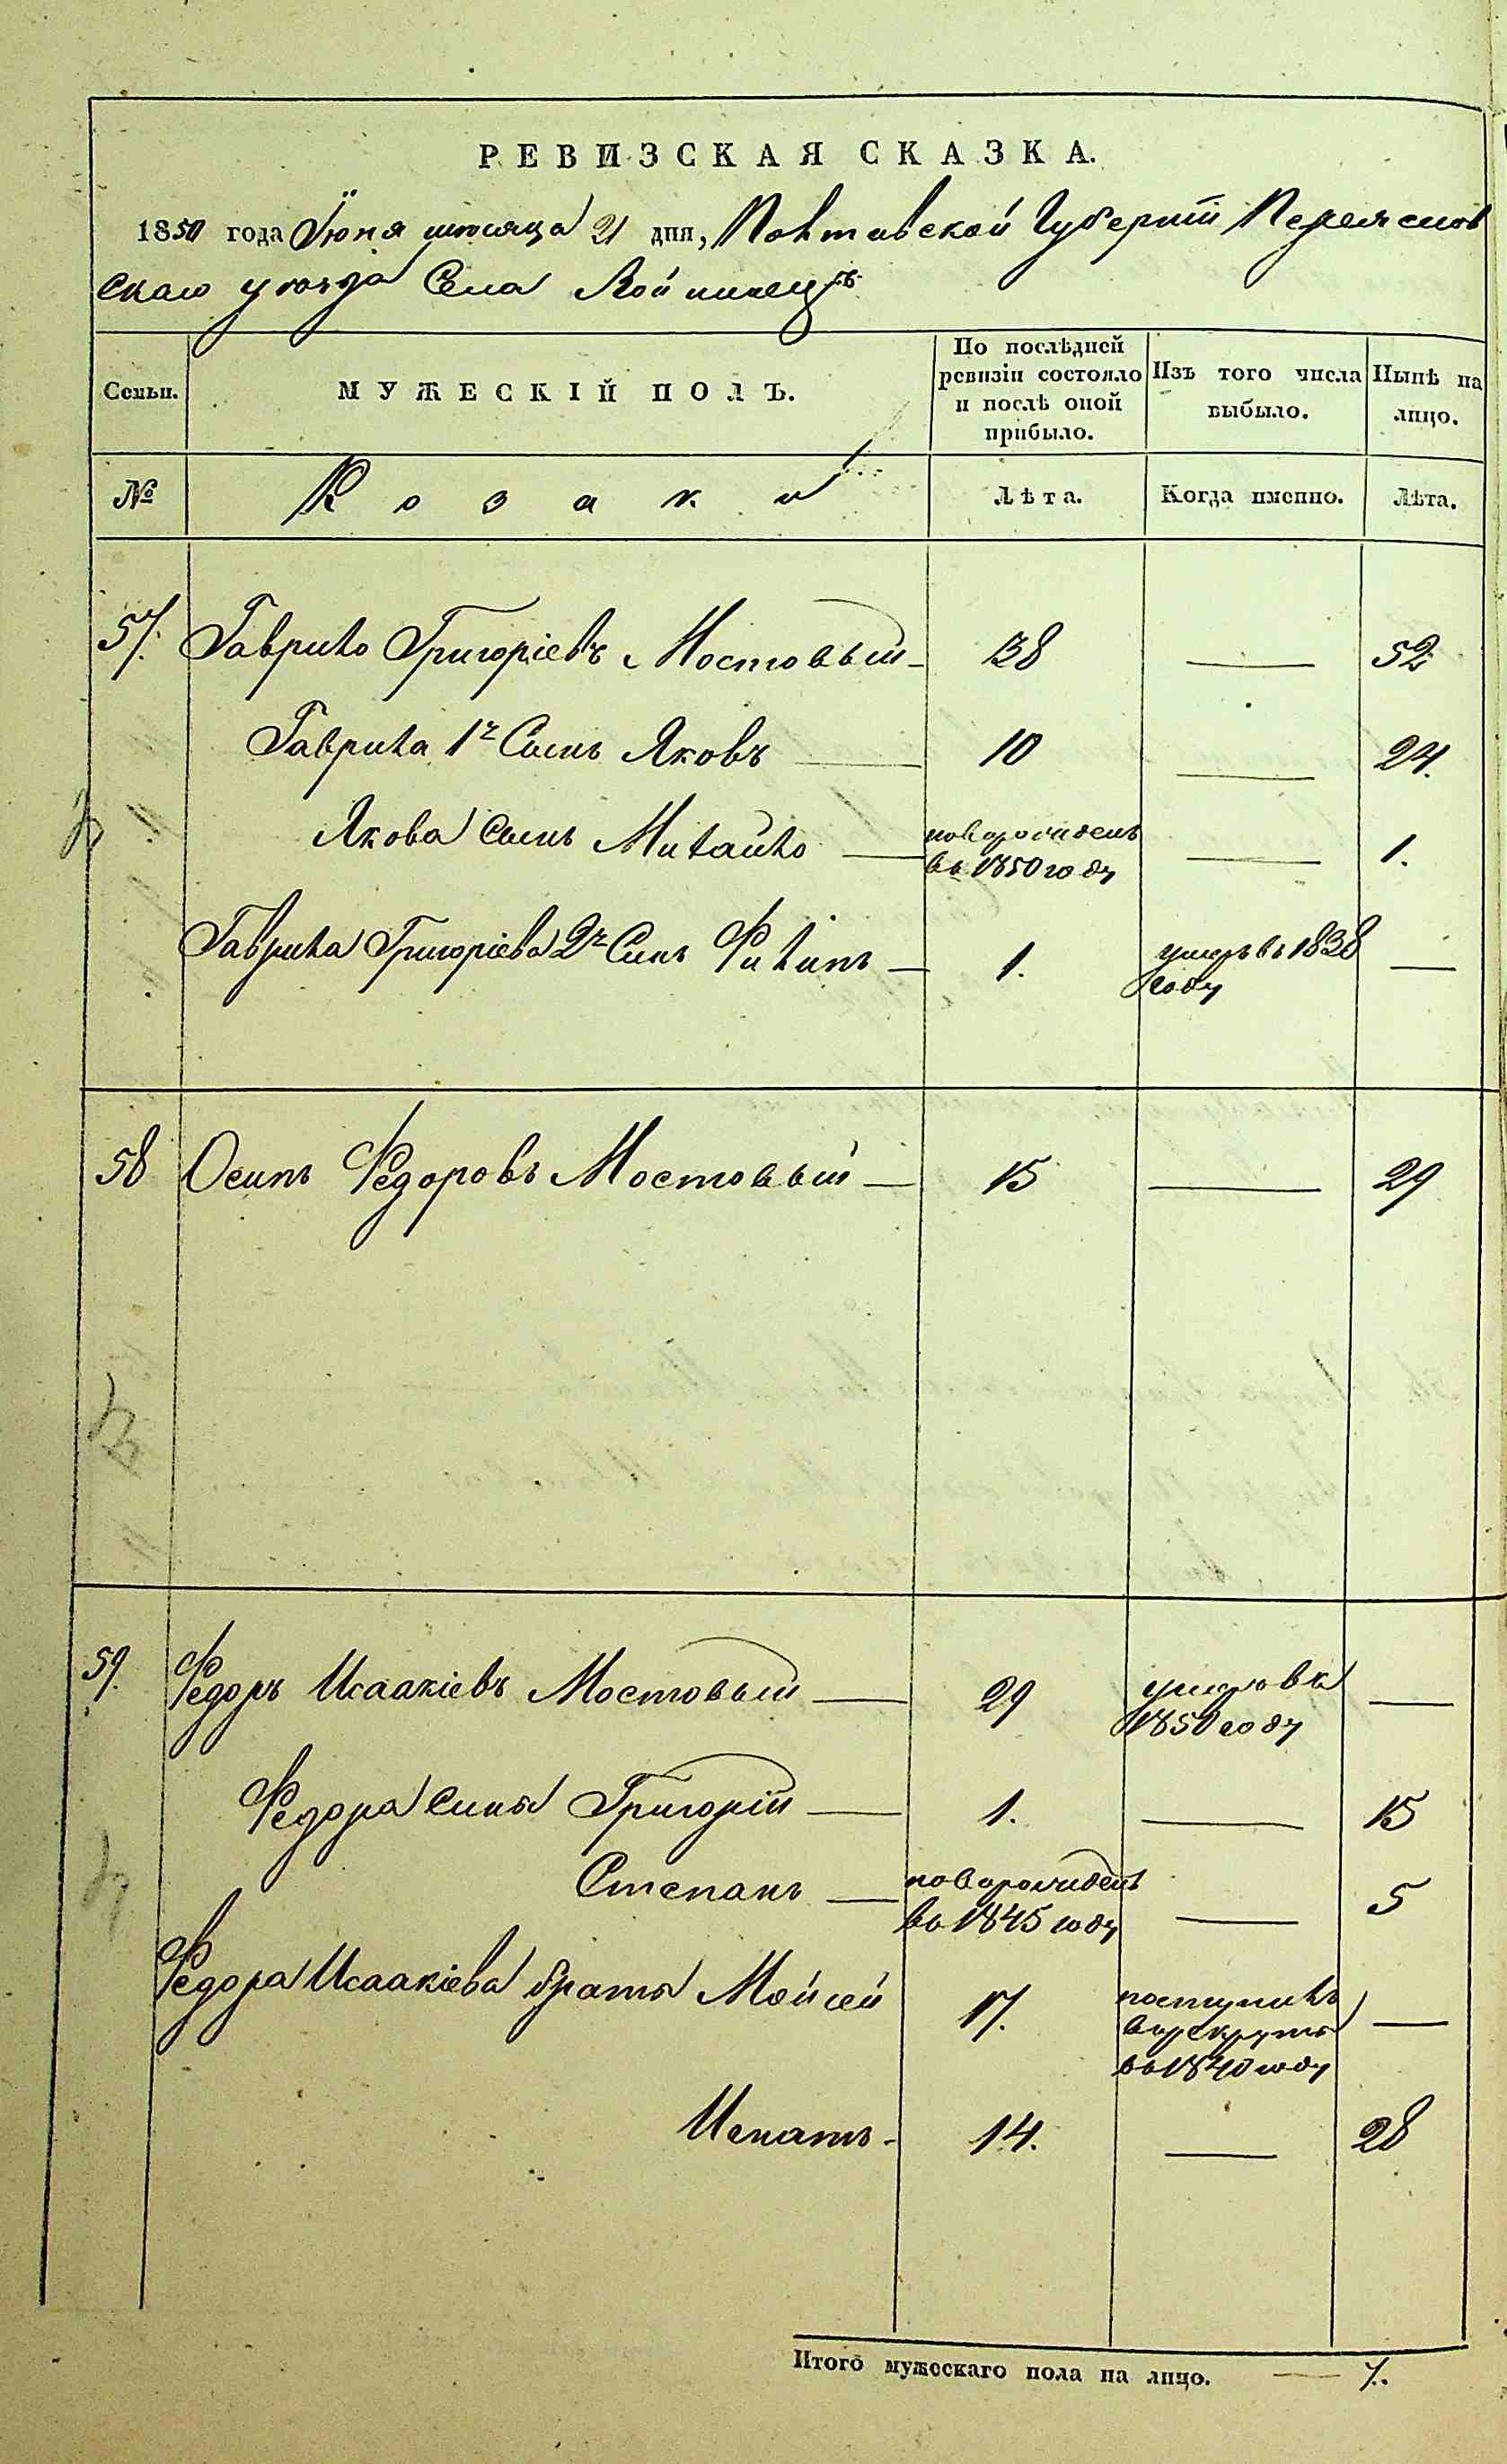 РЕВИЗСКАЯ СКАЗКА.
1850 года Іюня мѣсяца 21 дня, Полтавской Губерніи Переяслов
скаго уѣзда Села Войнинецъ
Семьи.
МУЖЕСКІЙ ПОЛЪ.
По послѣдней ревизіи состояло и послѣ оной прибыло.
Изъ того числа выбыло.
Нынѣ на лицо.
№
Козаки
Лѣта.
Когда именно.
Лѣта.
57. Гаврило Григоріевъ Мостовый 38 — 52
Гаврила 1й Сынъ Яковъ — 10 — 24.
Якова Сынъ Михайло — новорожденъ въ 1850 году — 1.
Гаврила Григоріева 2й Сынъ Филипъ — 1. умеръ въ 1838 году —
58 Осипъ Федоровъ Мостовый — 15 — 29
59. Федоръ Исаакіевъ Мостовый — 29 умеръ въ 1850 году —
Федора сыня Григорій — 1. — 15
Степанъ — новорожденъ въ 1845 году — 5
Федора Исаакіева братья Мойсей 17. поступилъ в рекруты въ 1840 году —
Игнатъ - 14. — 28
Итого мужескаго пола на лицо. — 7.